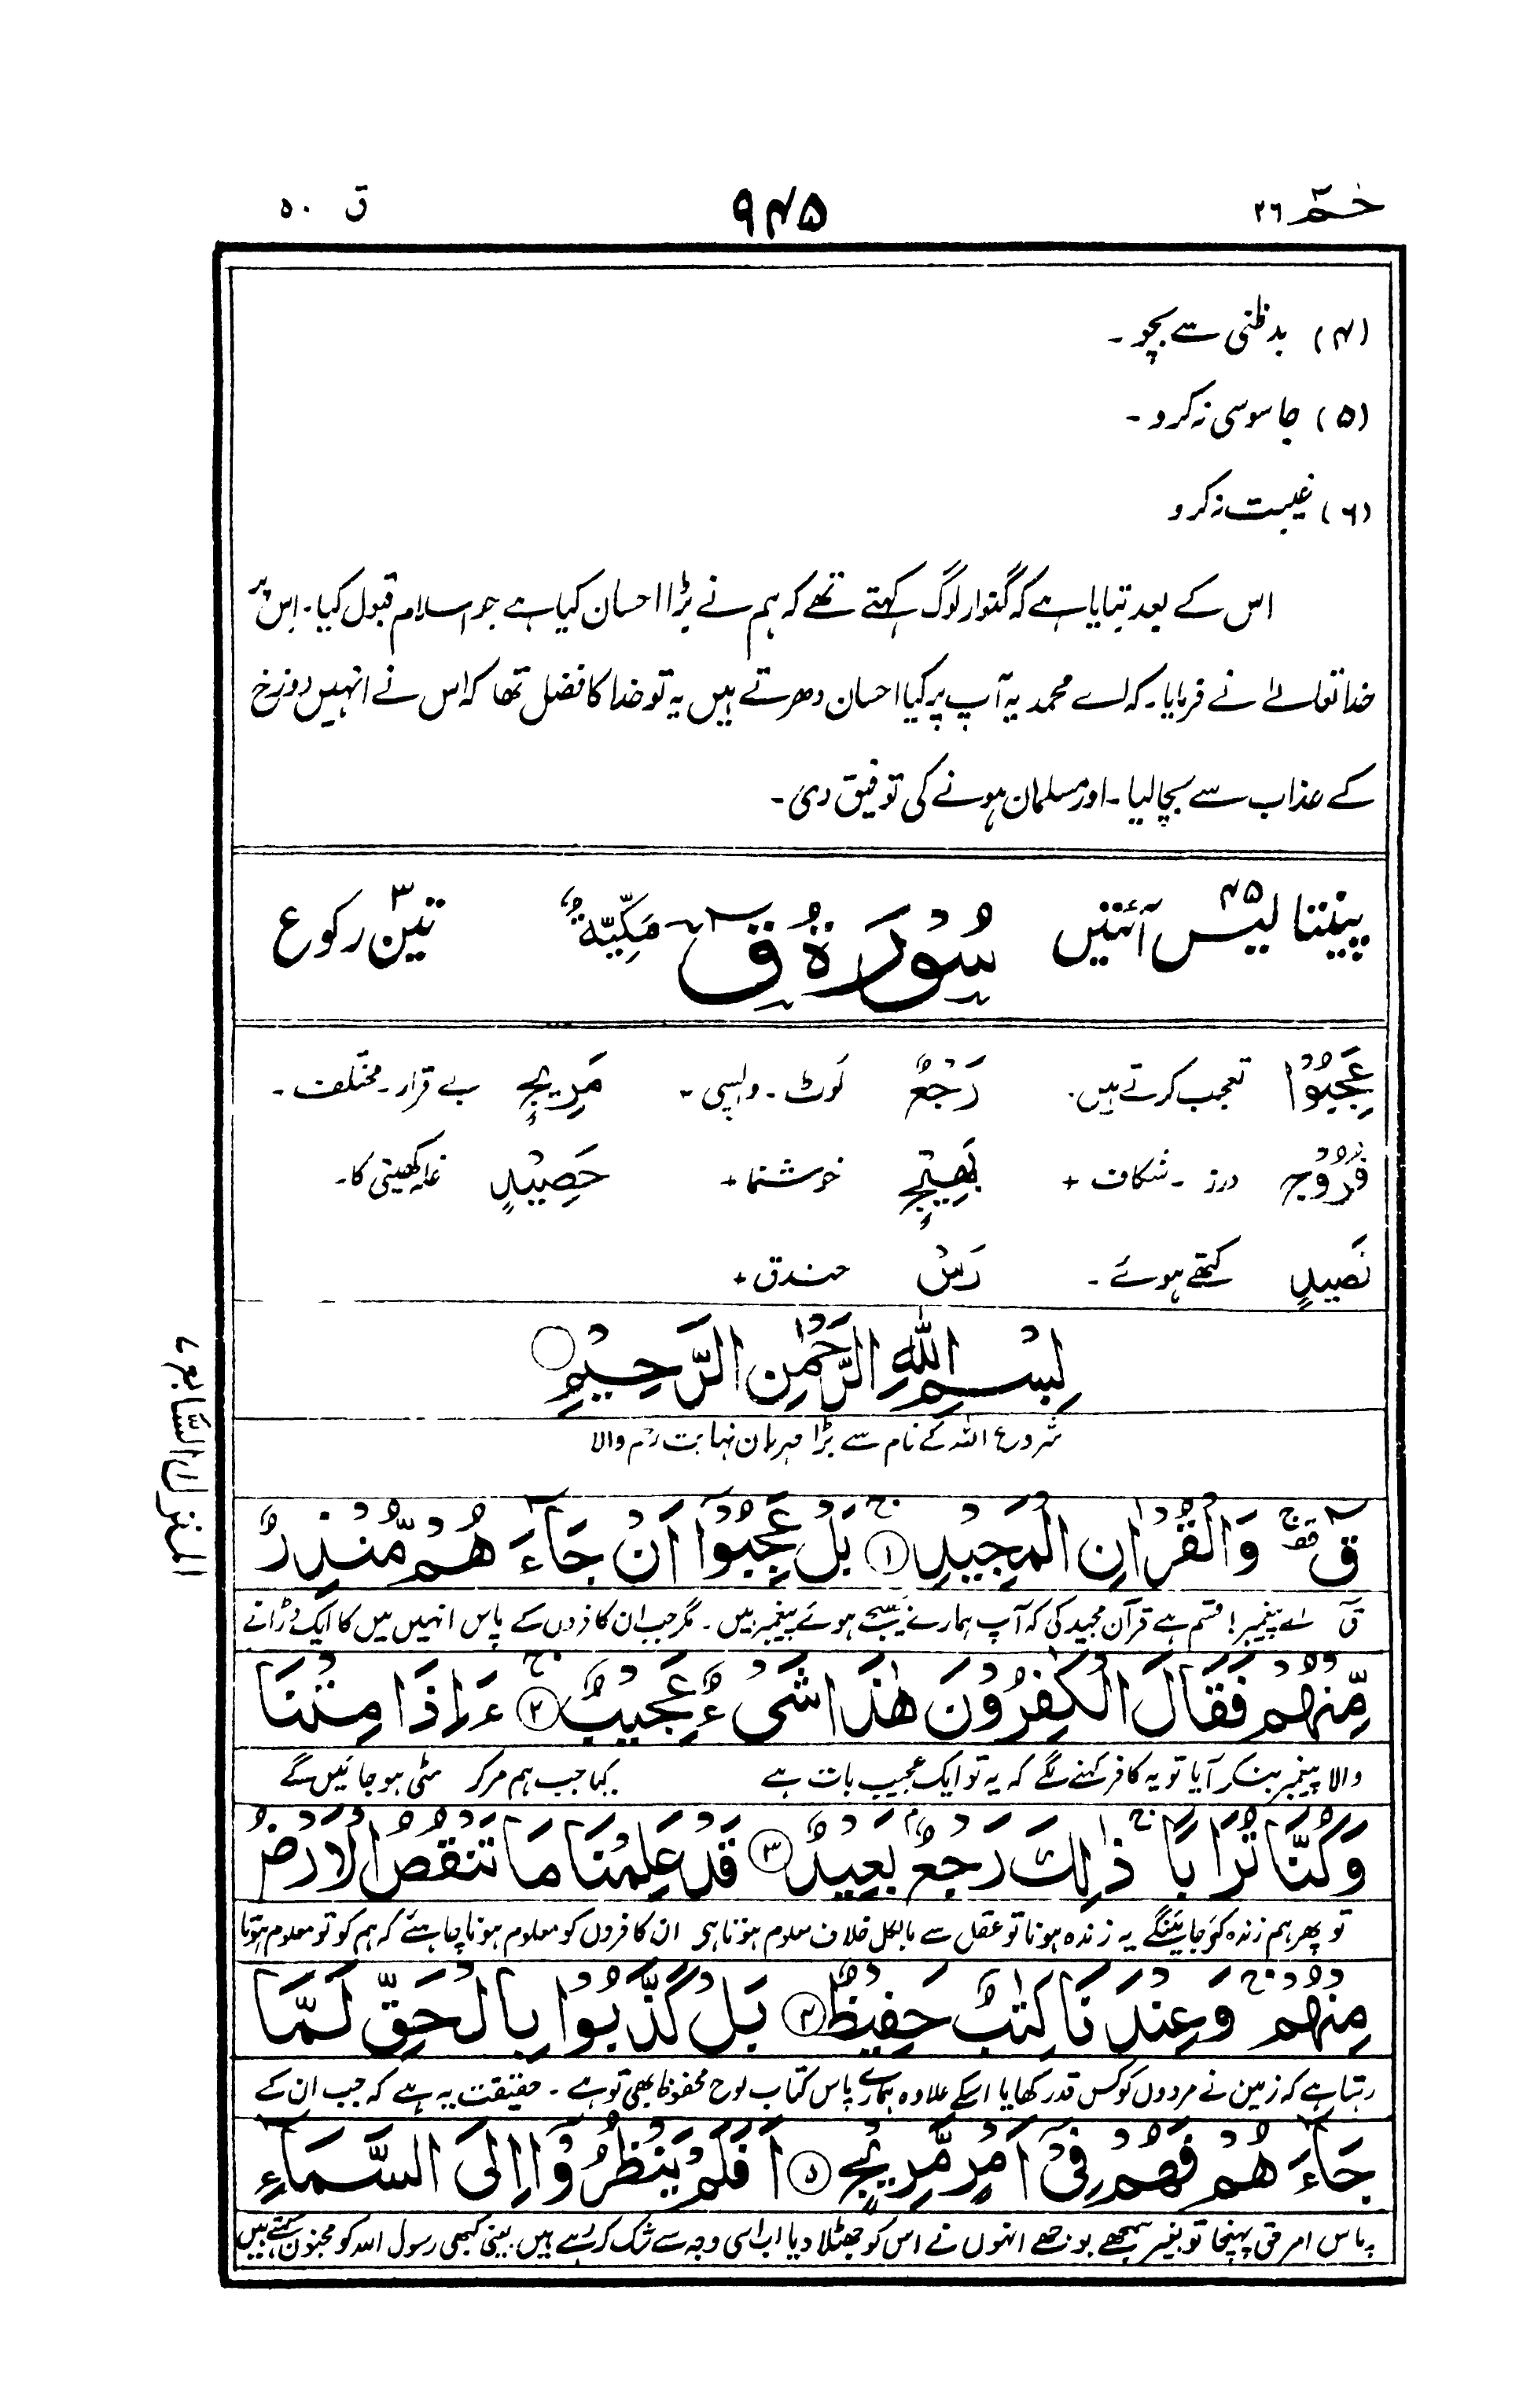 حٰمٓ ۲۶
۹۴۵
ق ۵۰
(۴) بدظنی سے بچو۔
(۵) جاسوسی نہ کرو۔
(۶) غیبت نہ کرو
اس کے بعد بتایا ہے کہ گنوار لوگ کہتے تھے کہ ہم نے بڑا احسان کیا ہے جو اسلام قبول کیا۔ اس پر
خدا تعالےٰ نے فرمایا۔ کہ اے محمد یہ آپ پر کیا احسان دھرتے ہیں یہ تو خدا کا فضل تھا کہ اس نے انہیں دوزخ
کے عذاب سے بچا لیا۔ اور مسلمان ہونے کی توفیق دی۔
پینتالیس ۴۵ آئتیں سُوْرَةُ قٓ مَكِّيَّةٌ تین ۳ رکوع
عَجِبُوْا تعجب کرتے ہیں۔ رَجْعٌ لَوٹ۔ واپسی۔ مَرِيْجٍ بے قرار۔ مختلف۔
فُرُوْجٍ درز۔ شگاف + بَهِيْجٍ خوشنما + حَصِيْدِ غلہ کھیتی کا۔
نَضِيْدٍ گتھے ہوئے۔ رَسّ خندق +
بِسْمِ اللهِ الرَّحْمٰنِ الرَّحِيْمِ
شروع اللہ کے نام سے بڑا مہربان نہایت رحم والا
قٓ ۚ وَالْقُرْاٰنِ الْمَجِيْدِ ۱ بَلْ عَجِبُوْٓا اَنْ جَآءَ هُمْ مُّنْذِرٌ
قٓ اے پیغمبر! قسم ہے قرآن مجید کی کہ آپ ہمارے بھیجے ہوئے پیغمبر ہیں۔ مگر جب ان کافروں کے پاس انہیں میں کا ایک ڈرانے
مِّنْهُمْ فَقَالَ الْكٰفِرُوْنَ هٰذَا شَىْءٌ عَجِيْبٌ ۲ ءَاِذَا مِتْنَا
والا پیغمبر بنکر آیا تو یہ کافر کہنے لگے کہ یہ تو ایک عجیب بات ہے کیا جب ہم مر کر مٹی ہو جائیں گے
وَكُنَّا تُرَابًا ۚ ذٰلِكَ رَجْعٌۢ بَعِيْدٌ ۳ قَدْ عَلِمْنَا مَا تَنْقُصُ الْاَرْضُ
تو پھر ہم زندہ کئے جائینگے یہ زندہ ہونا تو عقل سے بالکل خلاف معلوم ہوتا ہی ان کافروں کو معلوم ہونا چاہئے کہ ہم کو تو معلوم ہوتا
مِنْهُمْ ۚ وَعِنْدَنَا كِتٰبٌ حَفِيْظٌ ۴ بَلْ كَذَّبُوْا بِالْحَقِّ لَمَّا
رہتا ہے کہ زمین نے مردوں کو کس قدر کھایا اسکے علاوہ ہمارے پاس کتاب لوح محفوظ بھی تو ہے۔ حقیقت یہ ہے کہ جب ان کے
جَآءَ هُمْ فَهُمْ فِىْٓ اَمْرٍ مَّرِيْجٍ ۵ اَفَلَمْ يَنْظُرُوْٓا اِلَى السَّمَآءِ
پاس امر حق پہنچا تو بغیر سمجھے بوجھے انہوں نے اس کو جھٹلا دیا اب اسی وجہ سے شک کر رہے ہیں یعنی کبھی رسول اللہ کو مجنون کہتے ہیں
المنزل السّابع ۷